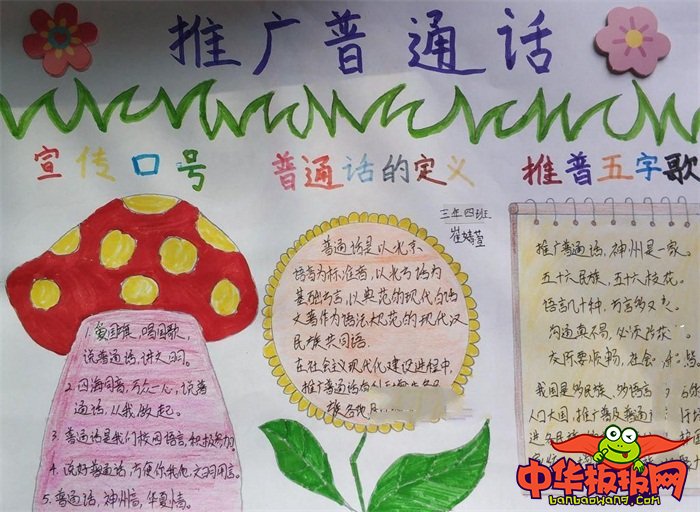 推广普通话
宣传口号
1. 爱国旗,唱国歌,
说普通话,讲文明。
2. 四海同音,万众一心,说普
通话,从我做起。
3. 普通话是我们校园语言,积极参加。
4. 说好普通话,方便你我他,文明用言。
5. 普通话,神州音,华夏情。
普通话的定义
三年四班
崔婧萱
普通话是以北京
语音为标准音,以北方话为
基础方言,以典范的现代白话
文著作为语法规范的现代汉
民族共同语。
在社会主义现代化建设进程中,
推广普通话
推普五字歌
推广普通话,神州是一家。
五十六民族,五十六枝花。
语言几十种,方言多又
沟通真不易,必须改
交际要顺畅,在会
我国是多民族、多语言
人口大国,推广普及普通
中华板报网
banbaowang.com